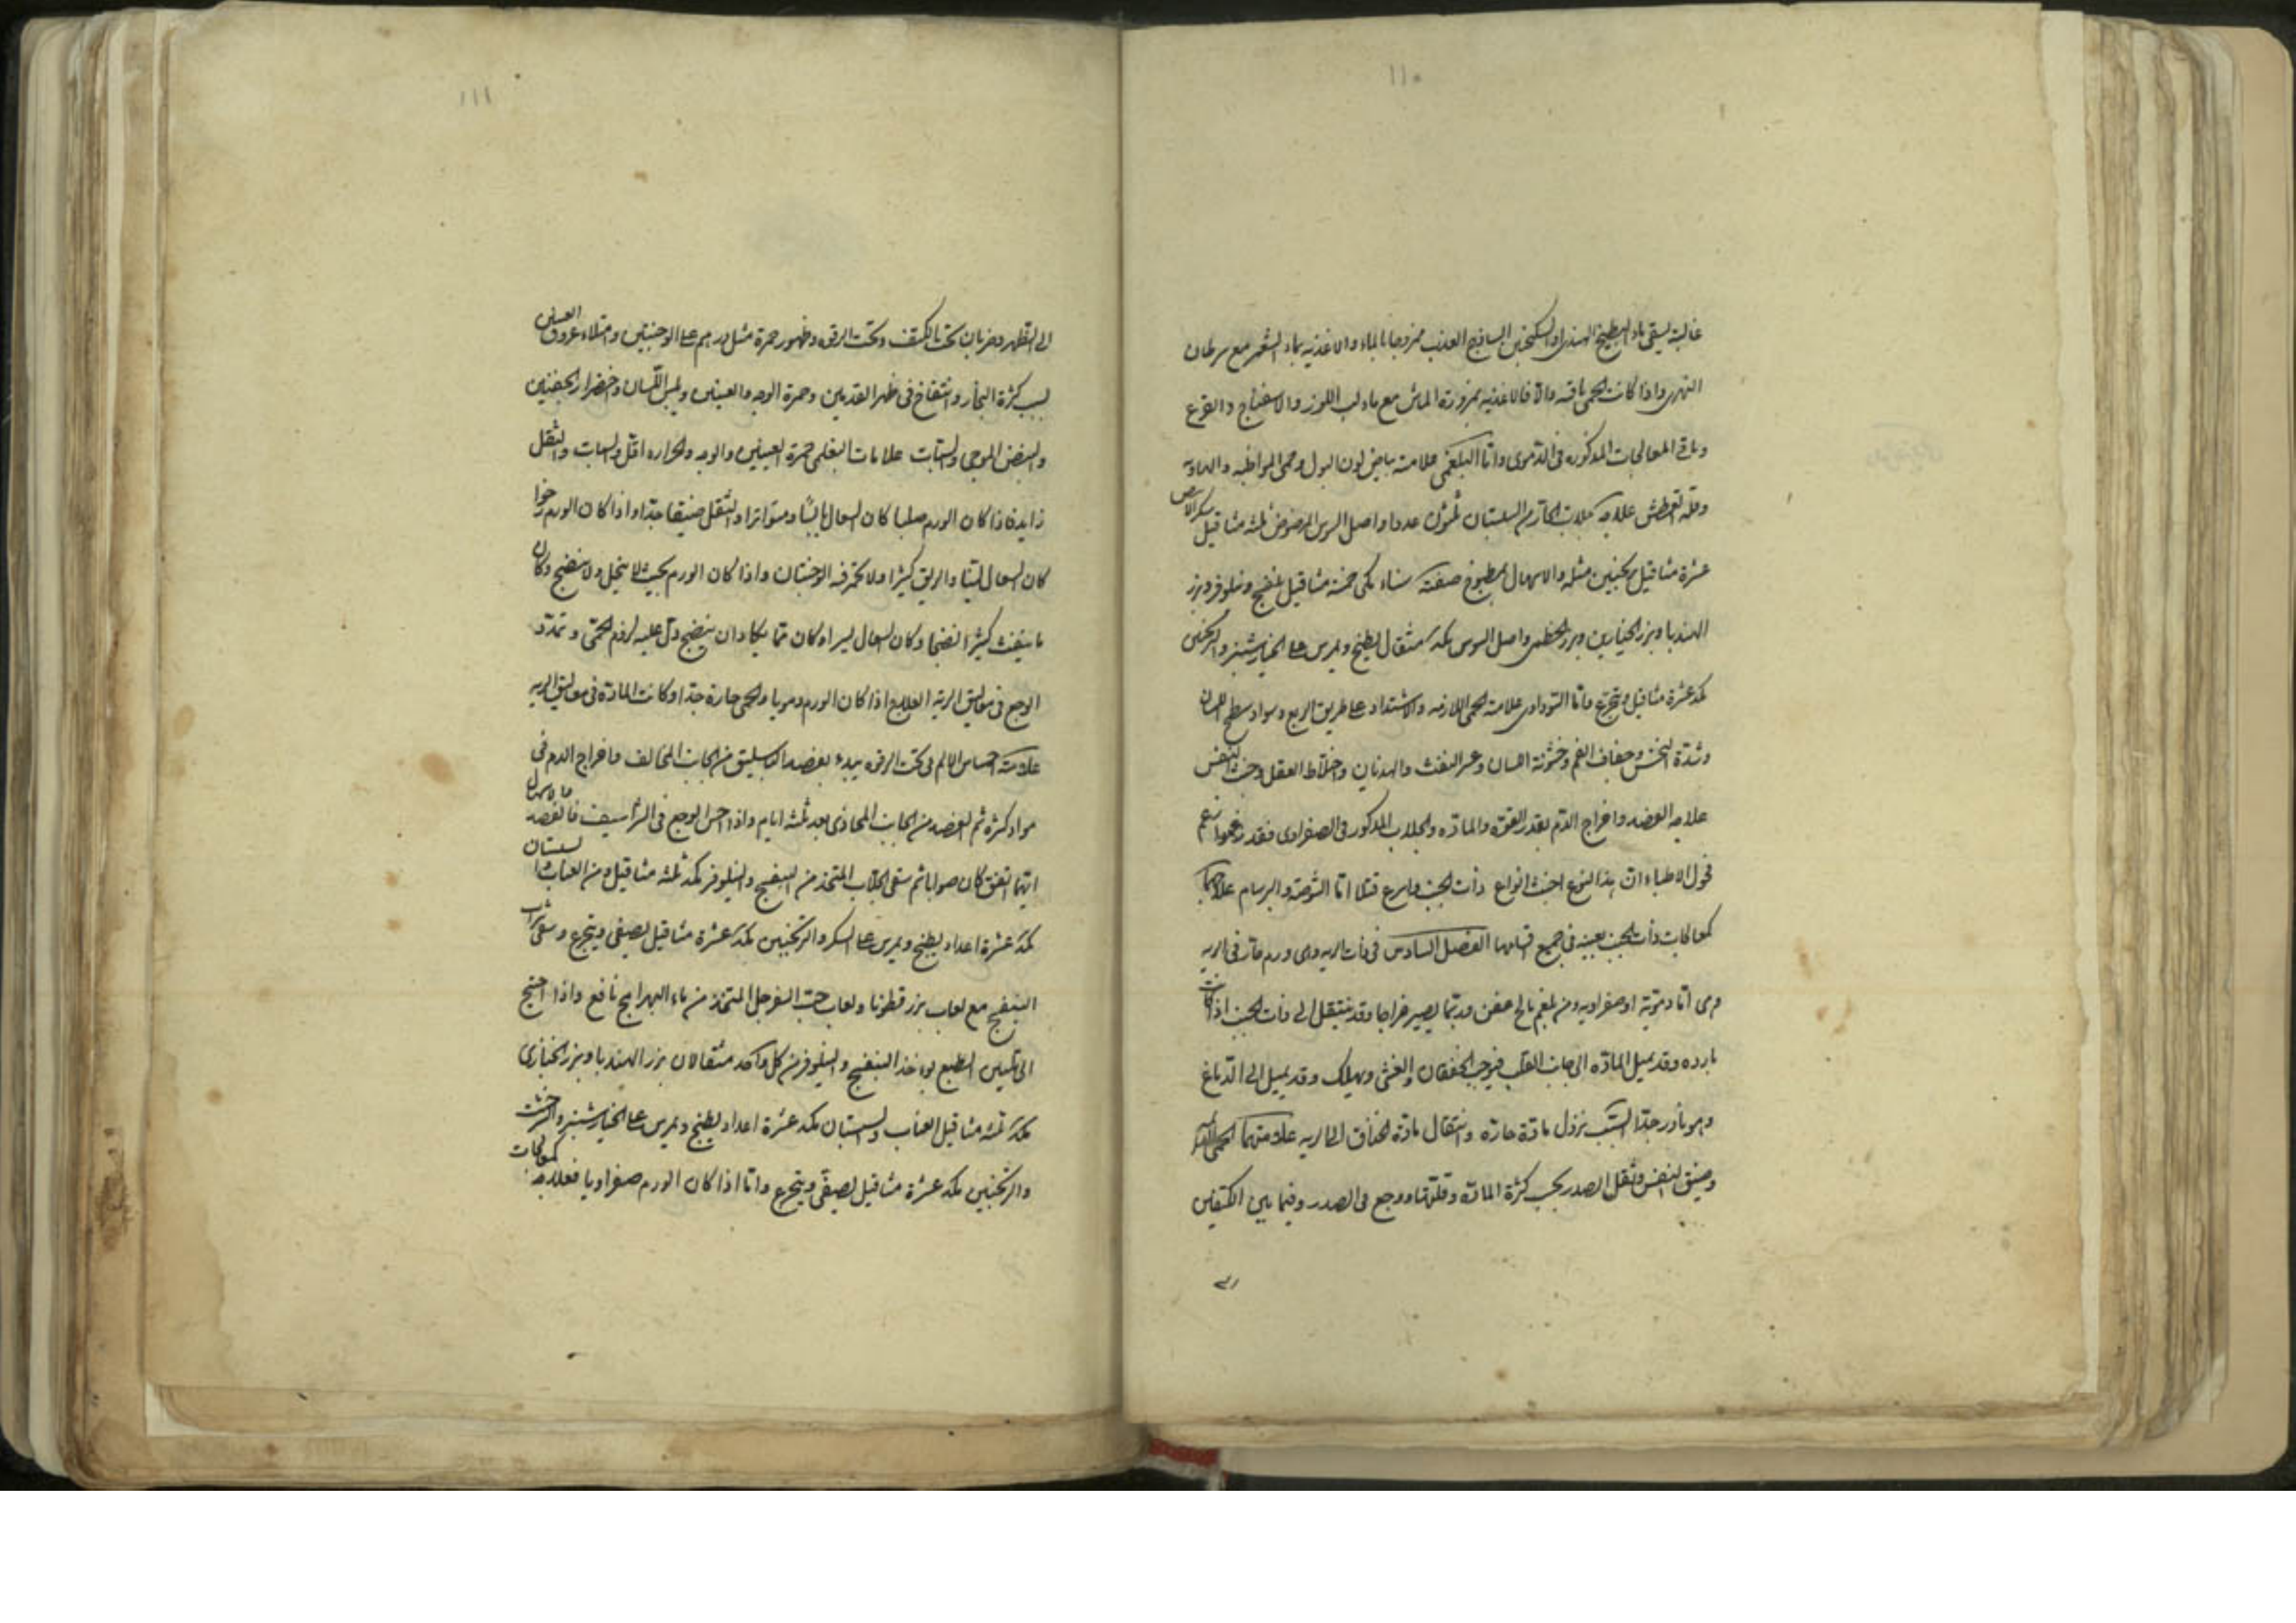 ١١٠
غالبة يسقى ماء البطيخ الهندى او السكنجبين الساذج العذب ممزوجا بالماء والاغذية بماء الشعير مع سرطان
النهرى واذا كانت الحمى باقية والا فالاغذية بمزورة الماش مع ماء لب اللوز والاسفناج والقرع
وباقى المعالجات المذكورة فى الدموى واما البلغمى علامته بياض لون البول وحمى المواظبة
وقلة العطش علاجه السپستان ثلثون عددا واصل السوس المرضوض ثلثة مثاقيل
عشرة مثاقيل سكنجبين مثله والاسهال بمطبوخ صفته سناء مكى خمسة مثاقيل بنفسج ونيلوفر وبزر
الهندبا وبزر الخيارين وبزر الخطمى واصل السوس مكد مثقال يطبخ ويمرس على الخيارشنبر والترنجبين
مكد عشرة مثاقيل ويتجرع واما السوداوى علامته الحمى اللازمة والاشتداد على طريق الربع وسواد سطح اللسان
وشدة النخس وجفاف الفم وخشونة اللسان وعسر النفث والهذيان واختلاط العقل وخبث النفس
علاجه الفصد واخراج الدم بقدر القوة والمادة والجلاب المذكور فى الصفراوى فقد زعموا
فحول الاطباء ان هذا النوع اخبث انواع ذات الجنب واسرع قتلا اما الشوصة والبرسام علاجهما
كمعالجات ذات الجنب بعينه فى جميع اقسامها الفصل السادس فى ذات الريه وهى ورم حار فى الريه
وهى اما دموية او صفراويه ومن بلغم مالح عفن وربما يصير خراجا وقد ينتقل الى ذات الجنب اذا كانت
بارده وقد يميل المادة الى جانب القلب فيوجب الخفقان والغشى ويهلك وقد يميل الى الدماغ
وهو نادر جدا السبب نزول مادة حارة وانتقال مادة الخناق الى الريه علامتهما الحمى
وضيق النفس وثقل الصدر بحسب كثرة المادة وقلتها ووجع فى الصدر وفيما بين الكتفين
١١١
الى الظهر وضربان تحت الكتف وتحت الترقوه وظهور حمرة مثل درهم على الوجنتين وامتلاء عروق العينين
لسبب كثرة البخار وانتفاخ فى ظهر القدمين وحمرة الوجه والعينين ويبس اللسان واخضرار الجفنين
والنبض الموجى علامات البلغمى حمرة العينين والوجه والحرارة اقل والثقل
زايد فاذا كان الورم صلبا كان السعال يابسا ومتواترا والنفس ضيقا جدا واذا كان الورم رخوا
كان السعال لينا والريق كثيرا ولا تحمر فيه الوجنتان واذا كان الورم بحيث لا ينحل ولا ينضج وكان
ما ينفث كثيرا نضجا وكان السعال يسيرا وكان مما يكاد ان ينضج دل عليه لزوم الحمى وتمدد
الوجع فى معاليق الريه العلاج اذا كان الورم دمويا والحمى حارة جدا وكانت المادة فى معاليق الريه
علامته احساس الالم فى تحت الترقوه يبدء بفصد الباسليق من الجانب المخالف واخراج الدم فى
مواد كثرة ثم الفصد من الجانب المحاذى بعد ثلثة ايام واذا احس الوجع فى الشراسيف فالفصد
ايهما اتفق كان صوابا ثم سقى الجلاب المتخذ من البنفسج والنيلوفر مكد ثلثة مثاقيل ومن العناب سپستان
مكد عشرة اعداد يطبخ ويمرس على السكر والترنجبين مكد عشرة مثاقيل يصفى ويتجرع وسقى شراب
البنفسج مع لعاب بزر قطونا ولعاب حب السفرجل المتخذ من ماء البهرامج نافع واذا احتيج
الى تليين الطبع يوخذ البنفسج والنيلوفر من كل واحد مثقالان بزر الهندبا وبزر الخبازى
مكد ثلثة مثاقيل العناب والسپستان مكد عشرة اعداد يطبخ ويمرس على الخيارشنبر
والترنجبين مكد عشرة مثاقيل يصفى ويتجرع واما اذا كان الورم صفراويا فعلاجه كمعالجات